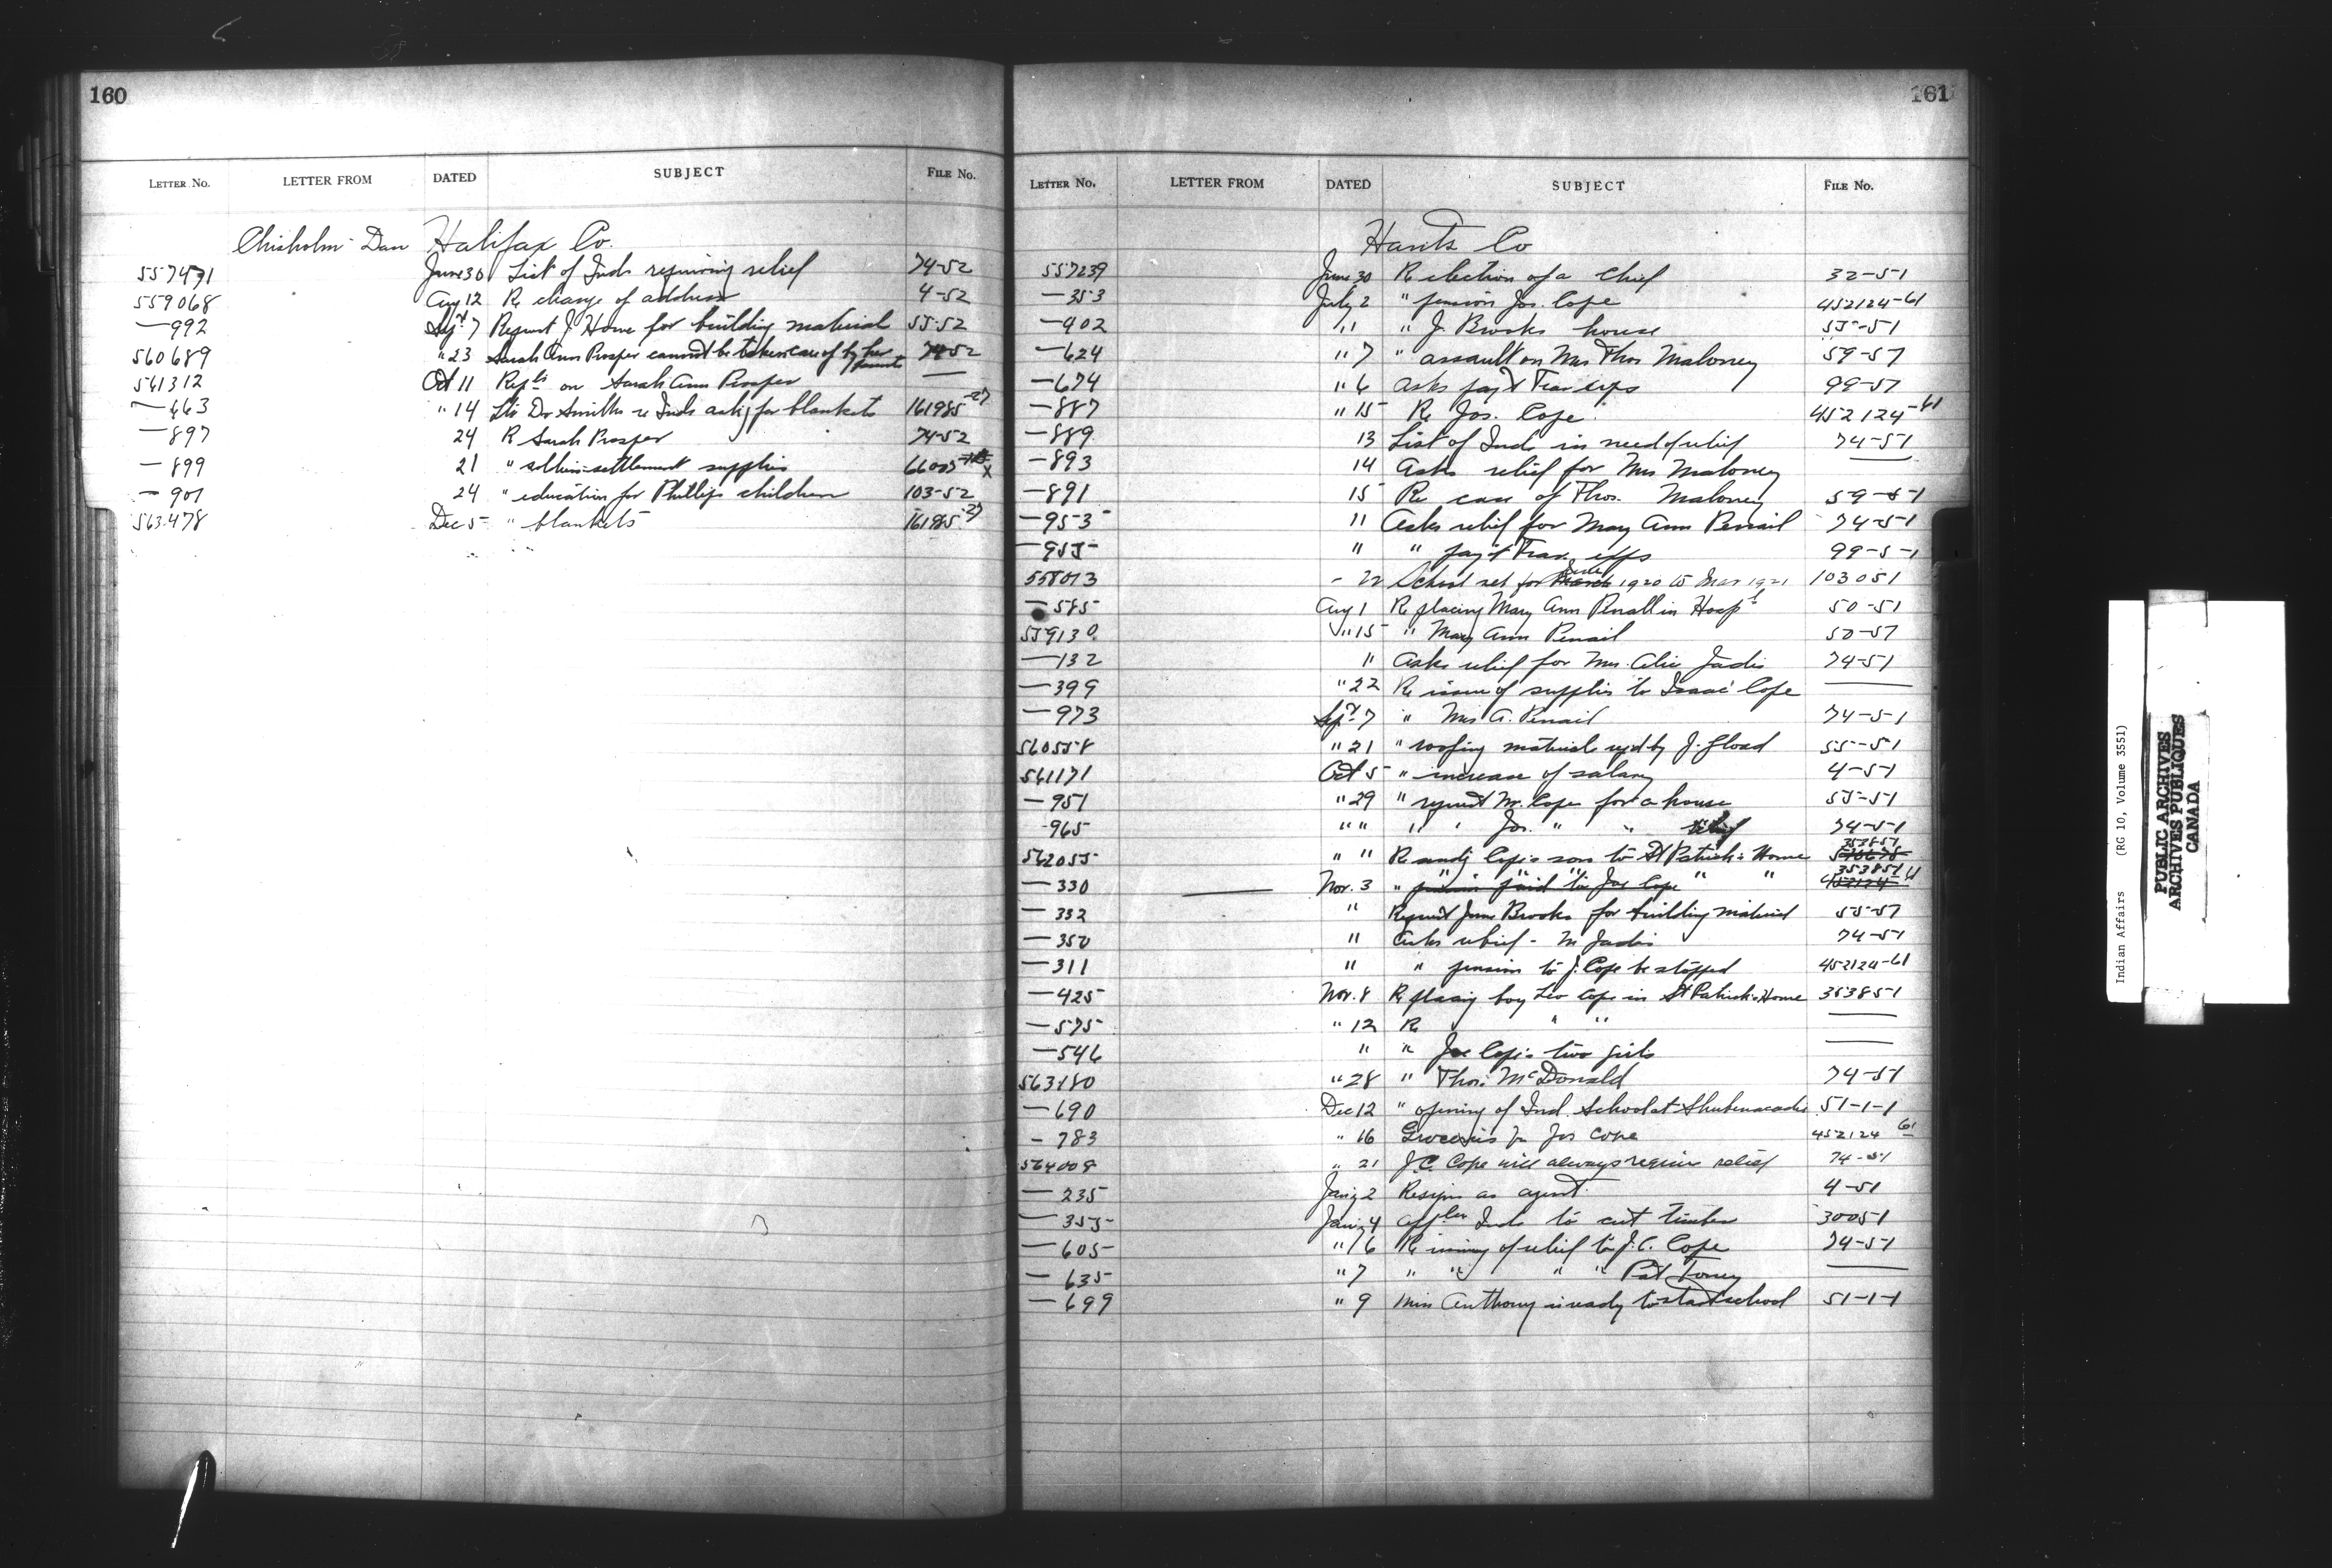 160
LETTER No. LETTER FROM DATED SUBJECT FILE No.
Chisholm Dan Halifax Co.
557471 June 30 List of Inds requiring relief 74-52
559068 Aug 12 Re change of address 4-52
—992 Sept 7 Request J. Howe for building material 55-52
560689 " 23 Sarah Ann Prosper cannot be taken care of by her parents 74-52
561312 Oct 11 Repts on Sarah Ann Prosper —
—463 " 14 Dr Smiths re Inds ask'g for blankets 161985-27
—897 24 R Sarah Prosper 74-52
—899 21 " settlement supplies
—901 24 " education for Phillips children 103-52
563478 Dec 5 " blankets 161985-27
161
LETTER No. LETTER FROM DATED SUBJECT FILE No.
Hants Co
557239 June 30 Re election of a Chief 32-51
—353 July 2 " pension Jos. Cope 452124-61
—402 " " J. Brooks house 55-51
—624 " 7 " assault on Mrs Thos Maloney 59-51
—674 " 6 Asks pay't Trav exps 99-51
—887 " 15 Re Jos. Cope 452124-61
—889 13 List of Inds in need of relief 74-51
—893 14 Asks relief for Mrs Maloney —
—891 15 Re case of Thos. Maloney 59-51
—953 " Asks relief for Mary Ann Penail 74-51
—955 " " pay't Trav. exps 99-51
558013 - 22 School ret for March June 1920 to Mar 1921 103051
—585 Aug 1 Re placing Mary Ann Penall in Hosp'l 50-51
559130 " 15 " Mary Ann Penail 50-51
—132 " Asks relief for Mrs. Alice Jadis 74-51
—399 " 22 Re issue of supplies to Isaac Cope —
—973 Sept 7 " Mrs A. Penail 74-51
560558 " 21 " roofing material reqd by J. Gload 55-51
561171 Oct 5 " increase of salary 4-51
—951 " 29 " request M. Cope for a house 55-51
-965 " " " " Jos. " " relief 74-51
562055 " " Re sendg Cope's son to St Patrick's Home 353851
—330 — Nov. 3 " pension paid to Jos Cope " " 353851 452124-61
—332 " Request James Brooks for building material 55-51
—350 " Asks relief - M Jadis 74-51
—311 " " pension to J. Cope be stopped 452124-61
—425 Nov. 8 Re placing boy Leo Cope in St Patrick's Home 353851
—575 " 12 Re " " —
—546 " " Joe Cope's two girls —
563180 " 28 " Thos. McDonald 74-51
—690 Dec 12 " opening of Ind. School at Shubenacadie 51-1-1
- 783 " 16 Groceries for Jos Cope 452124 61
564008 " 21 J.C. Cope will always require relief 74-51
— 235 Jany 2 Resigns as agent. 4-51
— 355 Jany 4 Inds to cut timber 30051
— 605 " 6 Re issuing of relief to J.C. Cope 74-51
— 635 " 7 " " " " Pat Toney —
— 699 " 9 Miss Anthony is ready to start school 51-1-1
Indian Affairs (RG 10, Volume 3551)
PUBLIC ARCHIVES
ARCHIVES PUBLIQUES
CANADA